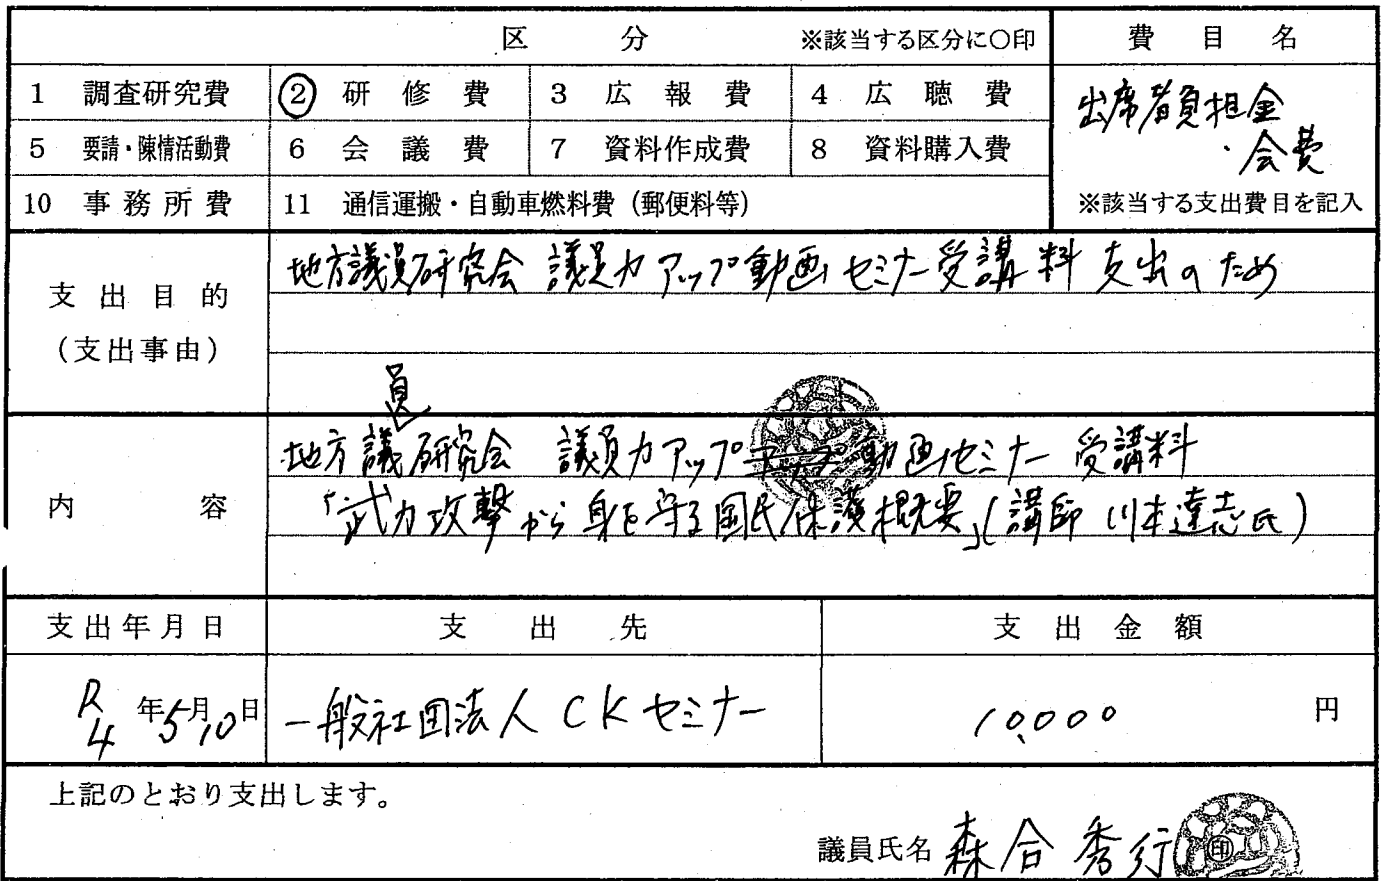 区 分 ※該当する区分に○印 費目名
1 調査研究費 2 研修費 3 広報費 4 広聴費
出席者負担金
・会費
5 要請・陳情活動費 6 会議費 7 資料作成費 8 資料購入費
10 事務所費 11 通信運搬・自動車燃料費（郵便料等） ※該当する支出費目を記入
支出目的
（支出事由）
地方議員研究会 議員力アップ動画セミナー受講料 支出のため
内容
地方議員研究会 議員力アップアップ動画セミナー 受講料
「武力攻撃から身を守る国民保護概要」(講師 川本達志氏)
支出年月日 支出先 支出金額
R4年5月10日 一般社団法人CKセミナー 10,000円
上記のとおり支出します。
議員氏名 森合秀行 印